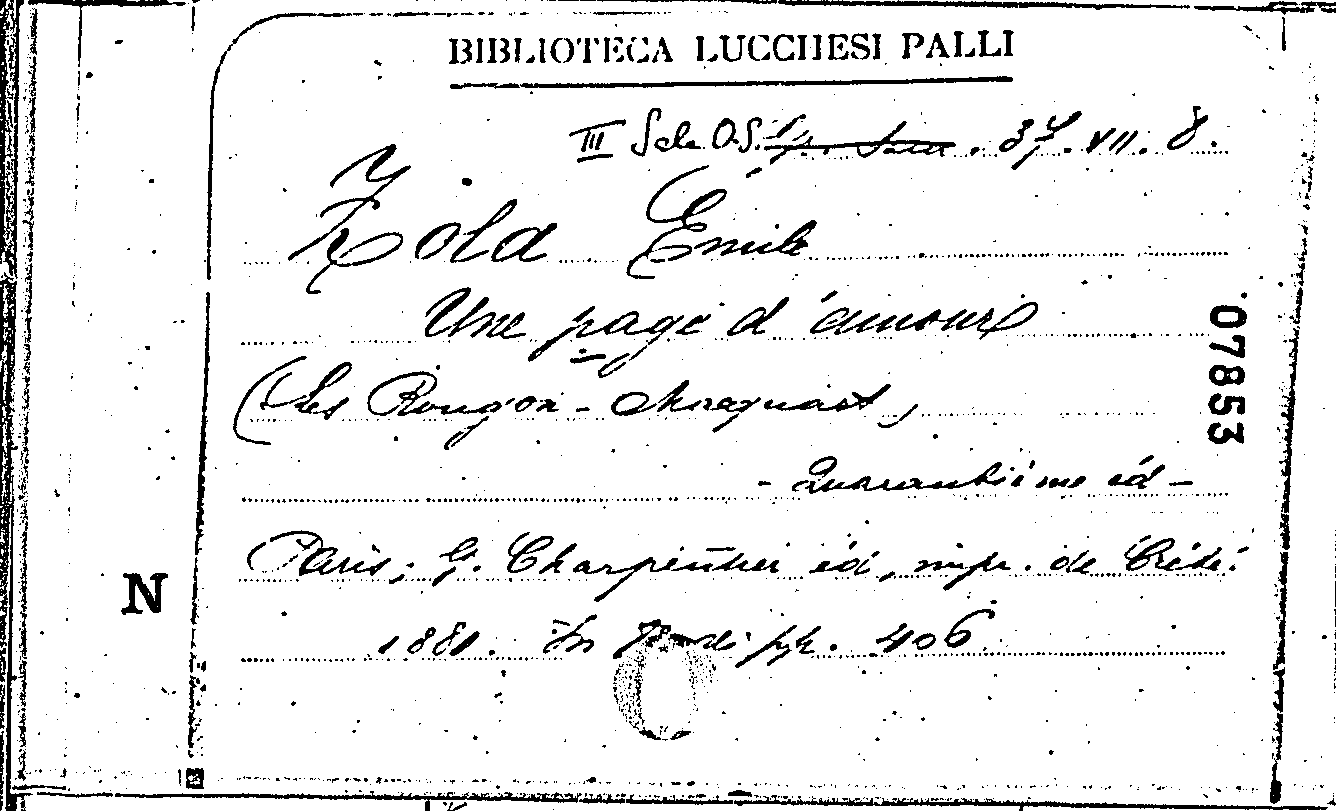 BIBLIOTECA LUCCHESI PALLI
III Sala O.S. VII. 8.
Zola Émile
Une page d'amour
(Les Rougon-Macquart,
- Quarantième éd -
07853
Paris; G. Charpentier éd, impr. de
N
1881. In di pp. 406